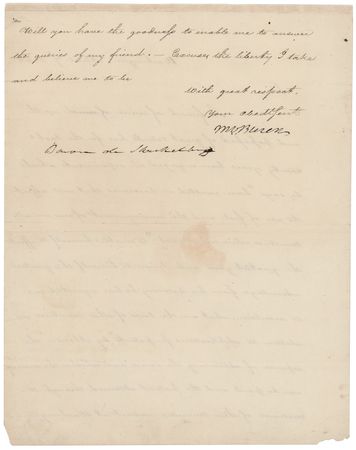 Will you have the goodness to enable me to answer
the queries of my friend. — Excuse the liberty I take
and believe me to be
With great respect,
Your obedt servt
MVBuren
Baron de